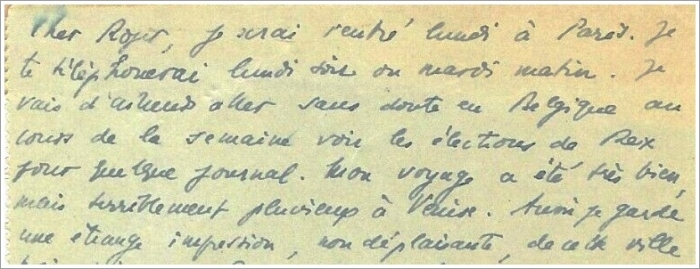 Cher Roger, je serai rentré lundi à Paris. Je
te téléphonerai lundi soir ou mardi matin. Je
vais d'ailleurs aller sans doute en Belgique au
cours de la semaine voir les élections de Rex
pour quelque journal. Mon voyage a été très bien,
mais terriblement pluvieux à Venise. Aussi je garde
une étrange impression, non déplaisante, de cette ville